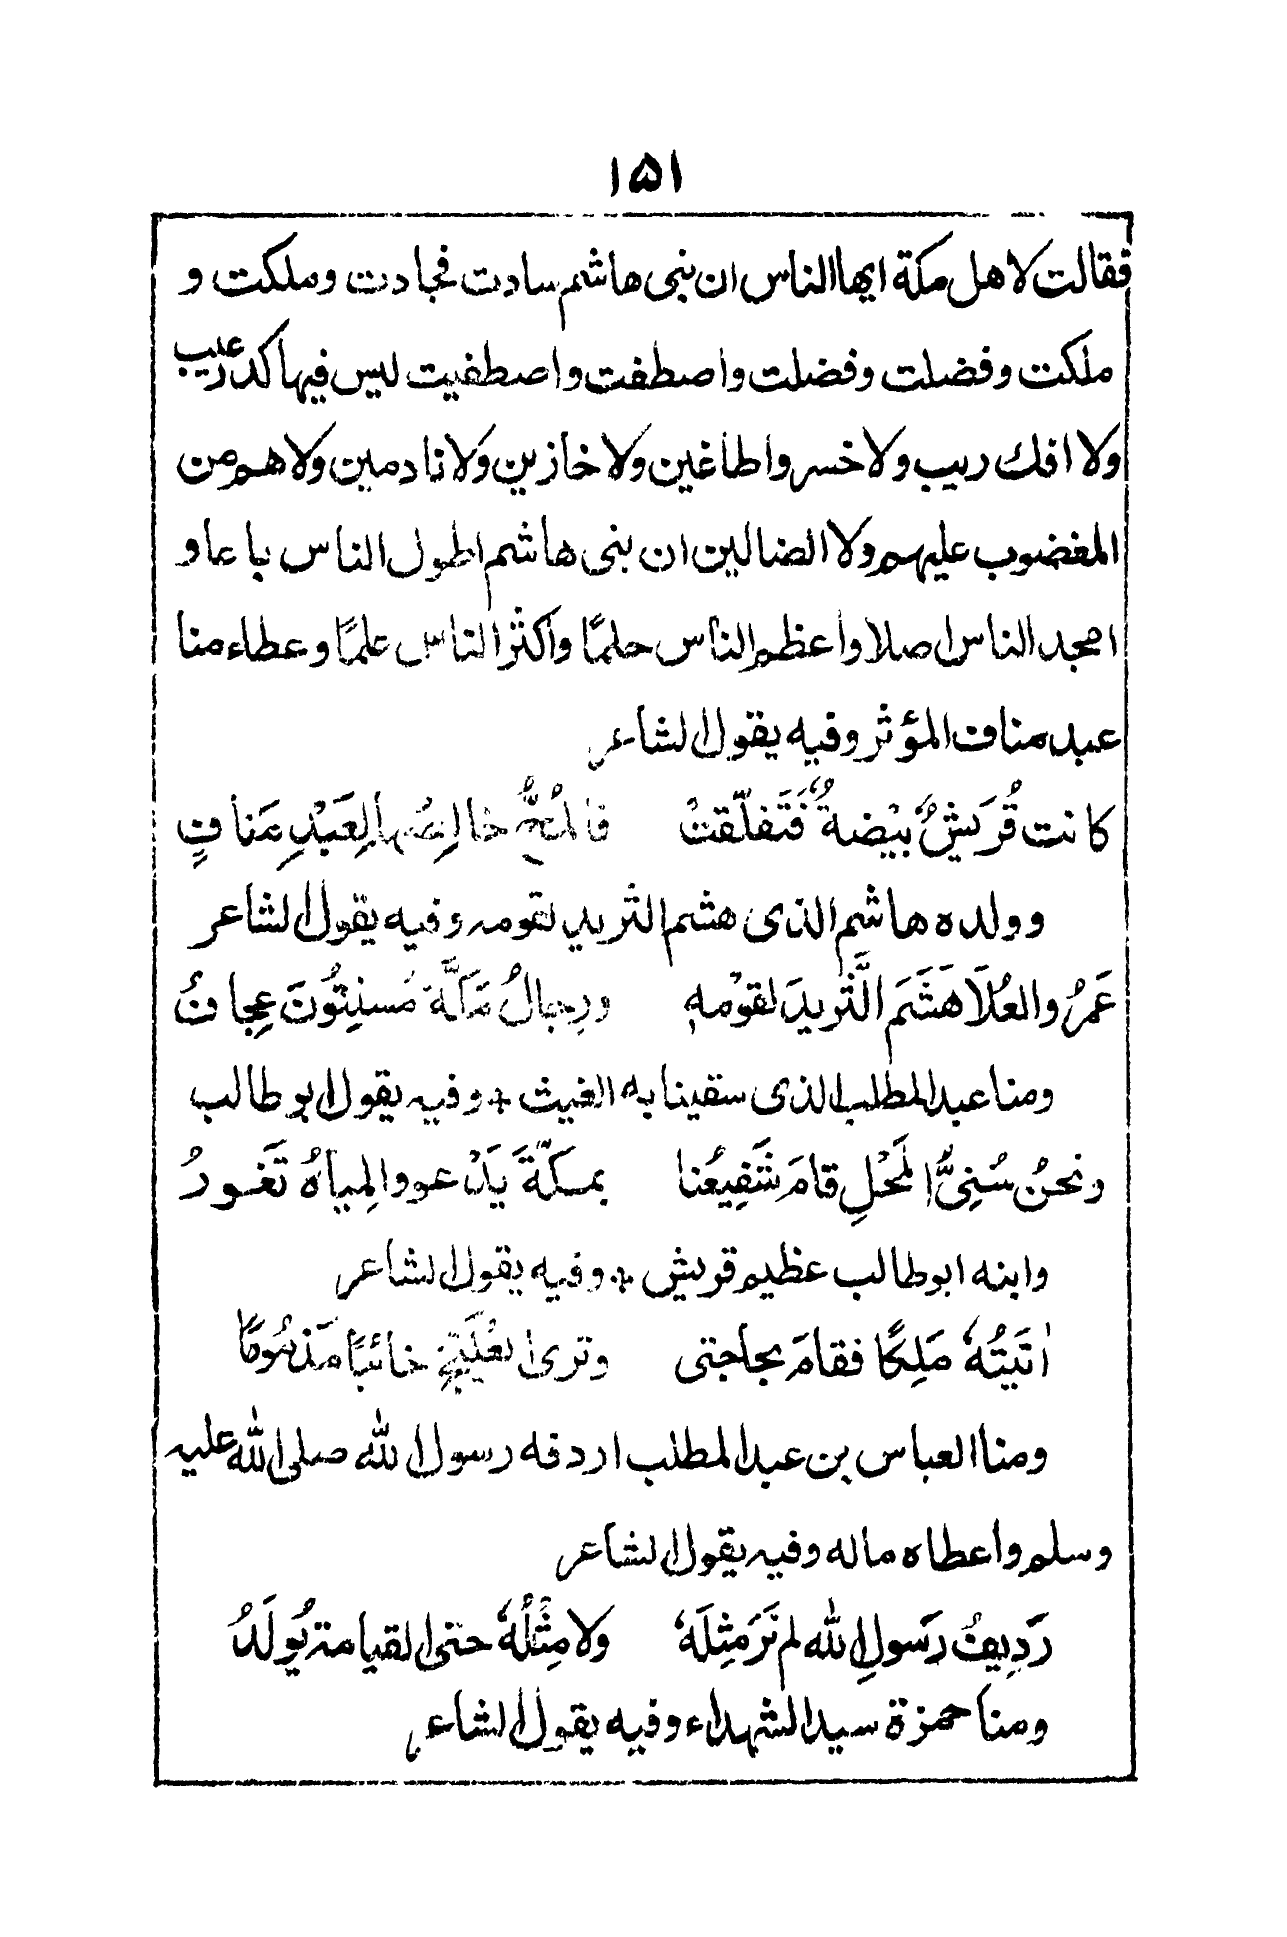 ۱۵۱
فقالت لاهل مكة ايها الناس ان بنى هاشم سادت فجادت وملكت و
ملكت وفضلت وفضلت واصطفت واصطفيت ليس فيها كدر عيب
ولا افك ريب ولا خسر واطاغين ولا خازين ولا نادمين ولا هم من
المغضوب عليهم ولا الضالين ان بنى هاشم اطول الناس باعا و
امجد الناس اصلا واعظم الناس حلمًا واكثر الناس علمًا وعطاء منا
عبد مناف المؤثر وفيه يقول الشاعر
كانت قُرَيشٌ بيْضةٌ فَتَفلّقتْ فالمُحُّ خالِصُها لِعَبْدِ مَنافٍ
وولده هاشم الذى هشم الثريد لقومه وفيه يقول الشاعر
عَمرُ والعُلَا هَشَمَ الثَّرِيدَ لقوْمهِ ورِجالُ مَكَّةَ مُسنِتُونَ عِجافُ
ومنا عبد المطلب الذى سقينا به الغيث + وفيه يقول ابو طالب
ونحنُ سُنِىُّ المَحْلِ قامَ شَفِيعُنا بمكّةَ يَدْعو والمِياهُ تَغورُ
وابنه ابو طالب عظيم قريش + وفيه يقول الشاعر
اتَيتُهُ مَلِكًا فقامَ بحاجتى وترى العُلَيّجَ خائبًا مَذمُومًا
ومنا العباس بن عبد المطلب اردفه رسول الله صلى الله عليه
وسلم واعطاه ماله وفيه يقول الشاعر
رَدِيفُ رَسولِ الله لم تَرَ مثِلَهُ ولا مِثْلُهُ حتى القيامة يُولَدُ
ومنا حمزة سيد الشهداء وفيه يقول الشاعر